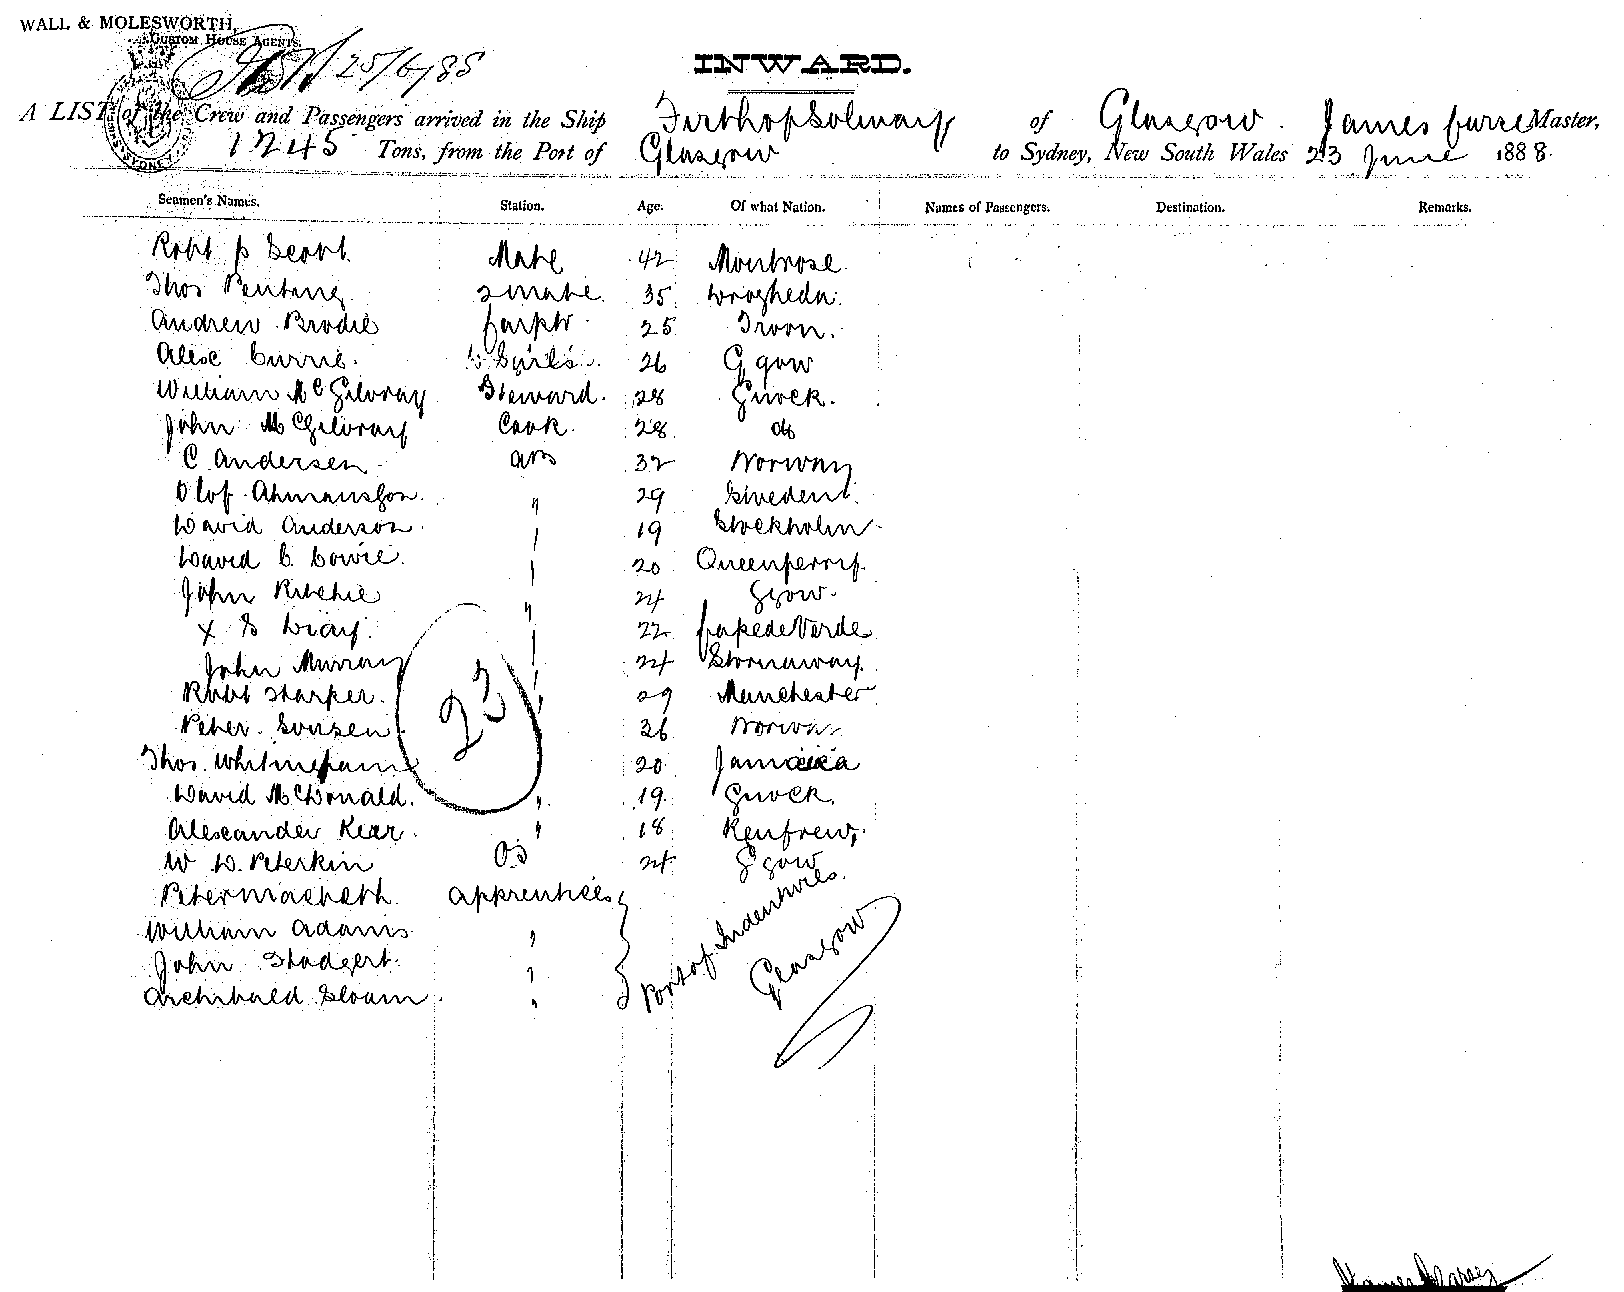 WALL & MOLESWORTH,
CUSTOM HOUSE AGENTS.
25/6/88
INWARD.
A LIST of the Crew and Passengers arrived in the Ship Firth of Solway of Glasgow. James Currie Master,
1245 Tons, from the Port of Glasgow to Sydney, New South Wales 23 June 1888.
Seamen's Names. Station. Age. Of what Nation. Names of Passengers. Destination. Remarks.
Robt Scott Mate 42 Montrose
Thos 2 mate 35
Andrew Brodie Carptr 25 Troon.
Alex Currie. 26 Ggow
William McGilvray Steward. 28 Gnock.
John McGilvray Cook. 28 do
C Andersen AB 32 Norway
Olof " 29 Sweden
David Anderson " 19 Stockholm
David C. Cowie. " 20 Queenferry.
John Ritchie " 24 Ggow.
x 22 Cape de Verde
John Murray " 24 Stornaway.
Robt Harper. " 29 Manchester
Peter " 26 Norway
Thos. 20 Jamaica
David McDonald. " 19. Gnock.
Alexander Kerr. " 18 Renfrew.
W D. Peterkin OS 24 Ggow
Peter Macbeth Apprentices
William Adams "
John "
Archibald Sloan. "
Port of Indentures.
Glasgow
23